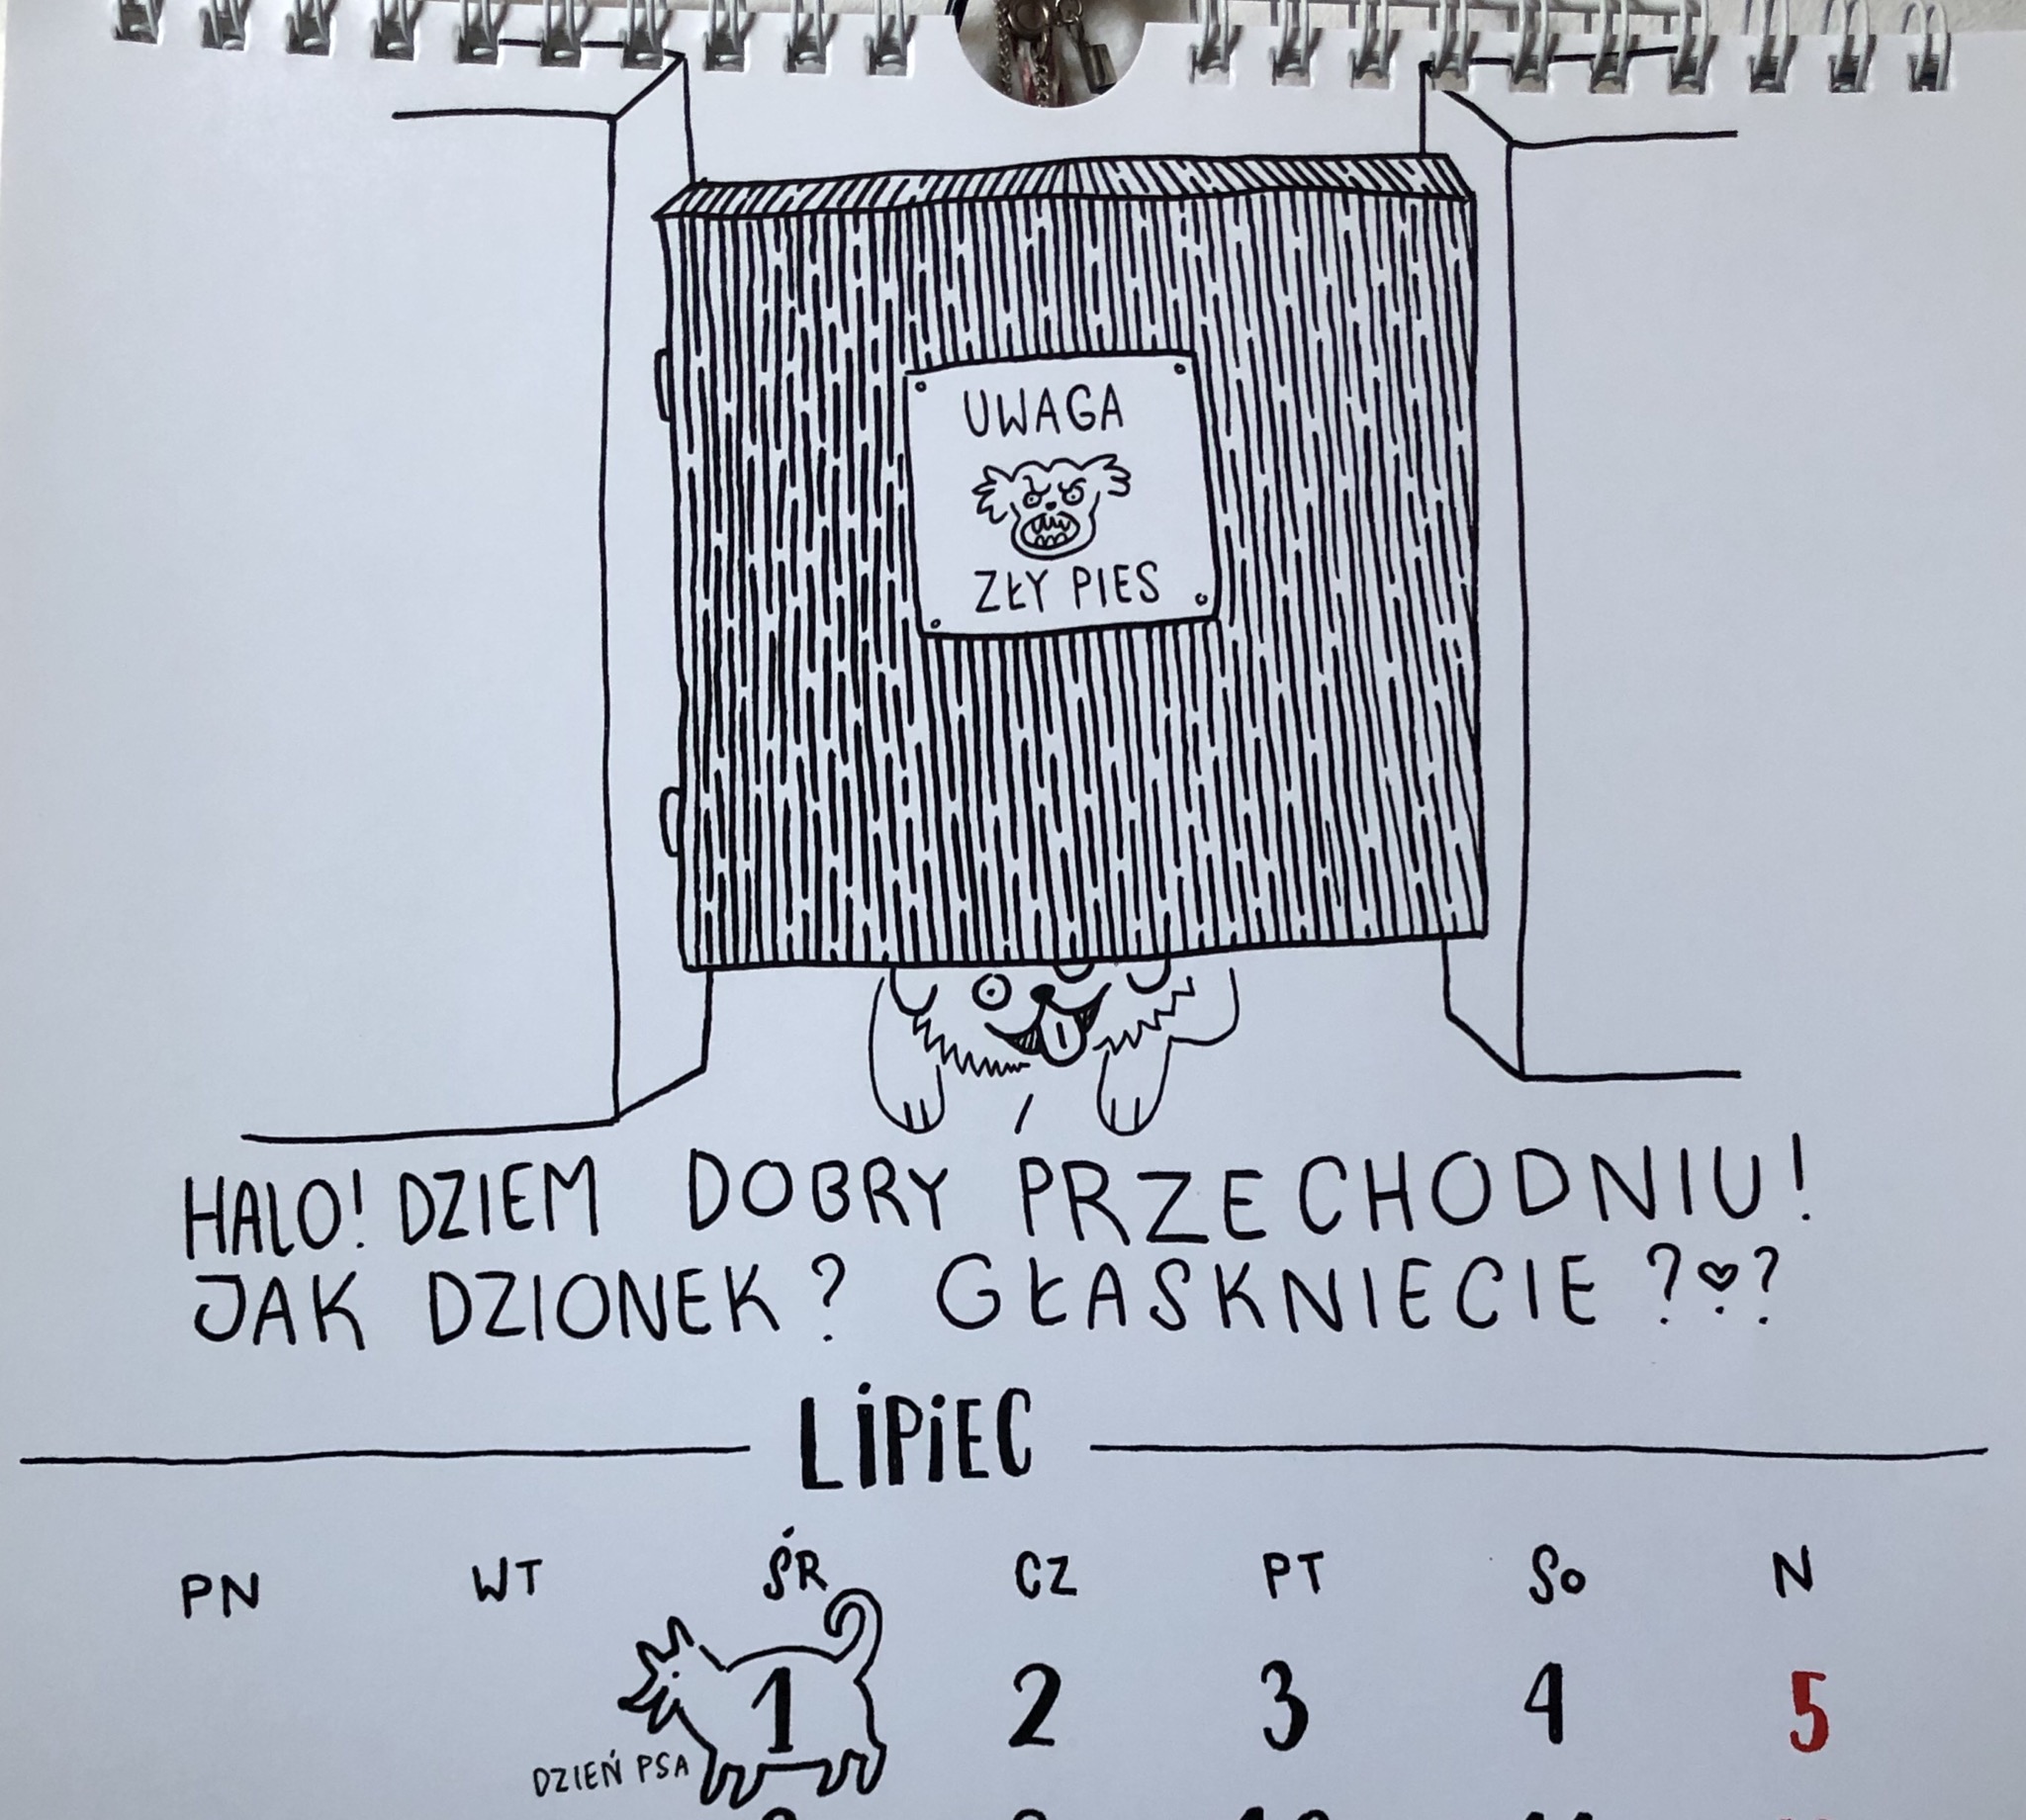 UWAGA
ZŁY PIES
HALO! DZIEM DOBRY PRZECHODNIU!
JAK DZIONEK? GŁASKNIECIE ?♥?
LIPIEC
PN WT ŚR CZ PT So N
1 2 3 4 5
DZIEŃ PSA